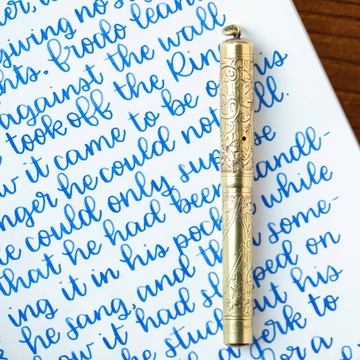 giving no
Frodo lean
against the wall
took off the Ring
it came to be on his
he could not
could only suppose
that he had been handl-
ing it in his pocket while
he sang, and some-
how it had slipped on
he stuck his
jerk to
a